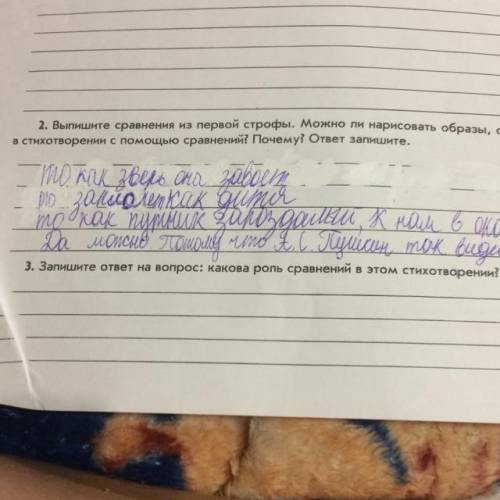 2. Выпишите сравнения из первой строфы. Можно ли нарисовать образы, с
в стихотворении с помощью сравнений? Почему? Ответ запишите.
то как зверь она завоет
то заплачет как дитя
то как путник к нам в око
Да можно потому что А. С. Пушкин так виде
3. Запишите ответ на вопрос: какова роль сравнений в этом стихотворении?